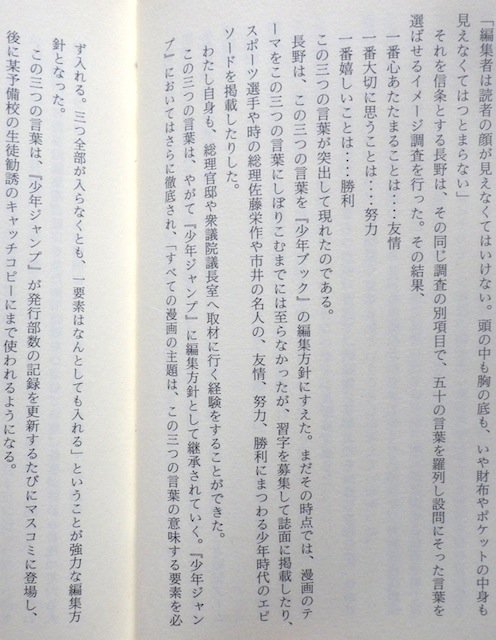 「編集者は読者の顔が見えなくてはいけない。頭の中も胸の底も、いや財布やポケットの中身も
見えなくてはつとまらない」
それを信条とする長野は、その同じ調査の別項目で、五十の言葉を羅列し設問にそった言葉を
選ばせるイメージ調査を行った。その結果、
一番心あたたまることは‥‥友情
一番大切に思うことは‥‥努力
一番嬉しいことは‥‥勝利
この三つの言葉が突出して現れたのである。
長野は、この三つの言葉を『少年ブック』の編集方針にすえた。まだその時点では、漫画のテ
ーマをこの三つの言葉にしぼりこむまでには至らなかったが、習字を募集して誌面に掲載したり、
スポーツ選手や時の総理佐藤栄作や市井の名人の、友情、努力、勝利にまつわる少年時代のエピ
ソードを掲載したりした。
わたし自身も、総理官邸や衆議院議長室へ取材に行く経験をすることができた。
この三つの言葉は、やがて『少年ジャンプ』に編集方針として継承されていく。『少年ジャン
プ』においてはさらに徹底され、「すべての漫画の主題は、この三つの言葉の意味する要素を必
ず入れる。三つ全部が入らなくとも、一要素はなんとしても入れる」ということが強力な編集方
針となった。
この三つの言葉は、『少年ジャンプ』が発行部数の記録を更新するたびにマスコミに登場し、
後に某予備校の生徒勧誘のキャッチコピーにまで使われるようになる。